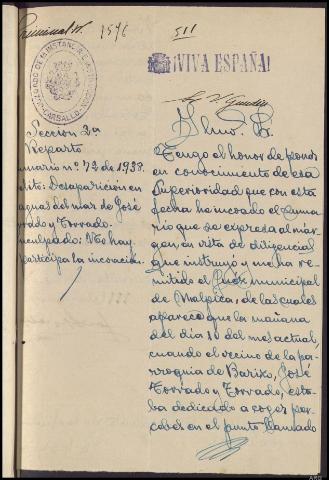 Criminal n.
1546
511
JUZGADO DE 1ª INSTANCIA E INSTRUCCION CARBALLO
¡VIVA ESPAÑA!
Sección 2ª
Reparto
umario nº 72 de 1938.
lito: Desaparición en
aguas del mar de José
rrado y Torrado.
nculpado: No hay
participa la incoación.
Ilmo. Sr.
Tengo el honor de poner
en conocimiento de esa
Superioridad que con esta
fecha he incoado el suma
rio que se expresa al már-
gen, en vista de diligencias
que instruyó y me ha re-
mitido el Juez municipal
de Malpica, de las cuales
aparece que la mañana
del día 10 del mes actual,
cuando el vecino de la pa-
rroquia de Barizo, José
Torrado y Torrado, esta-
ba dedicado a coger per-
cebes en el punto llamado